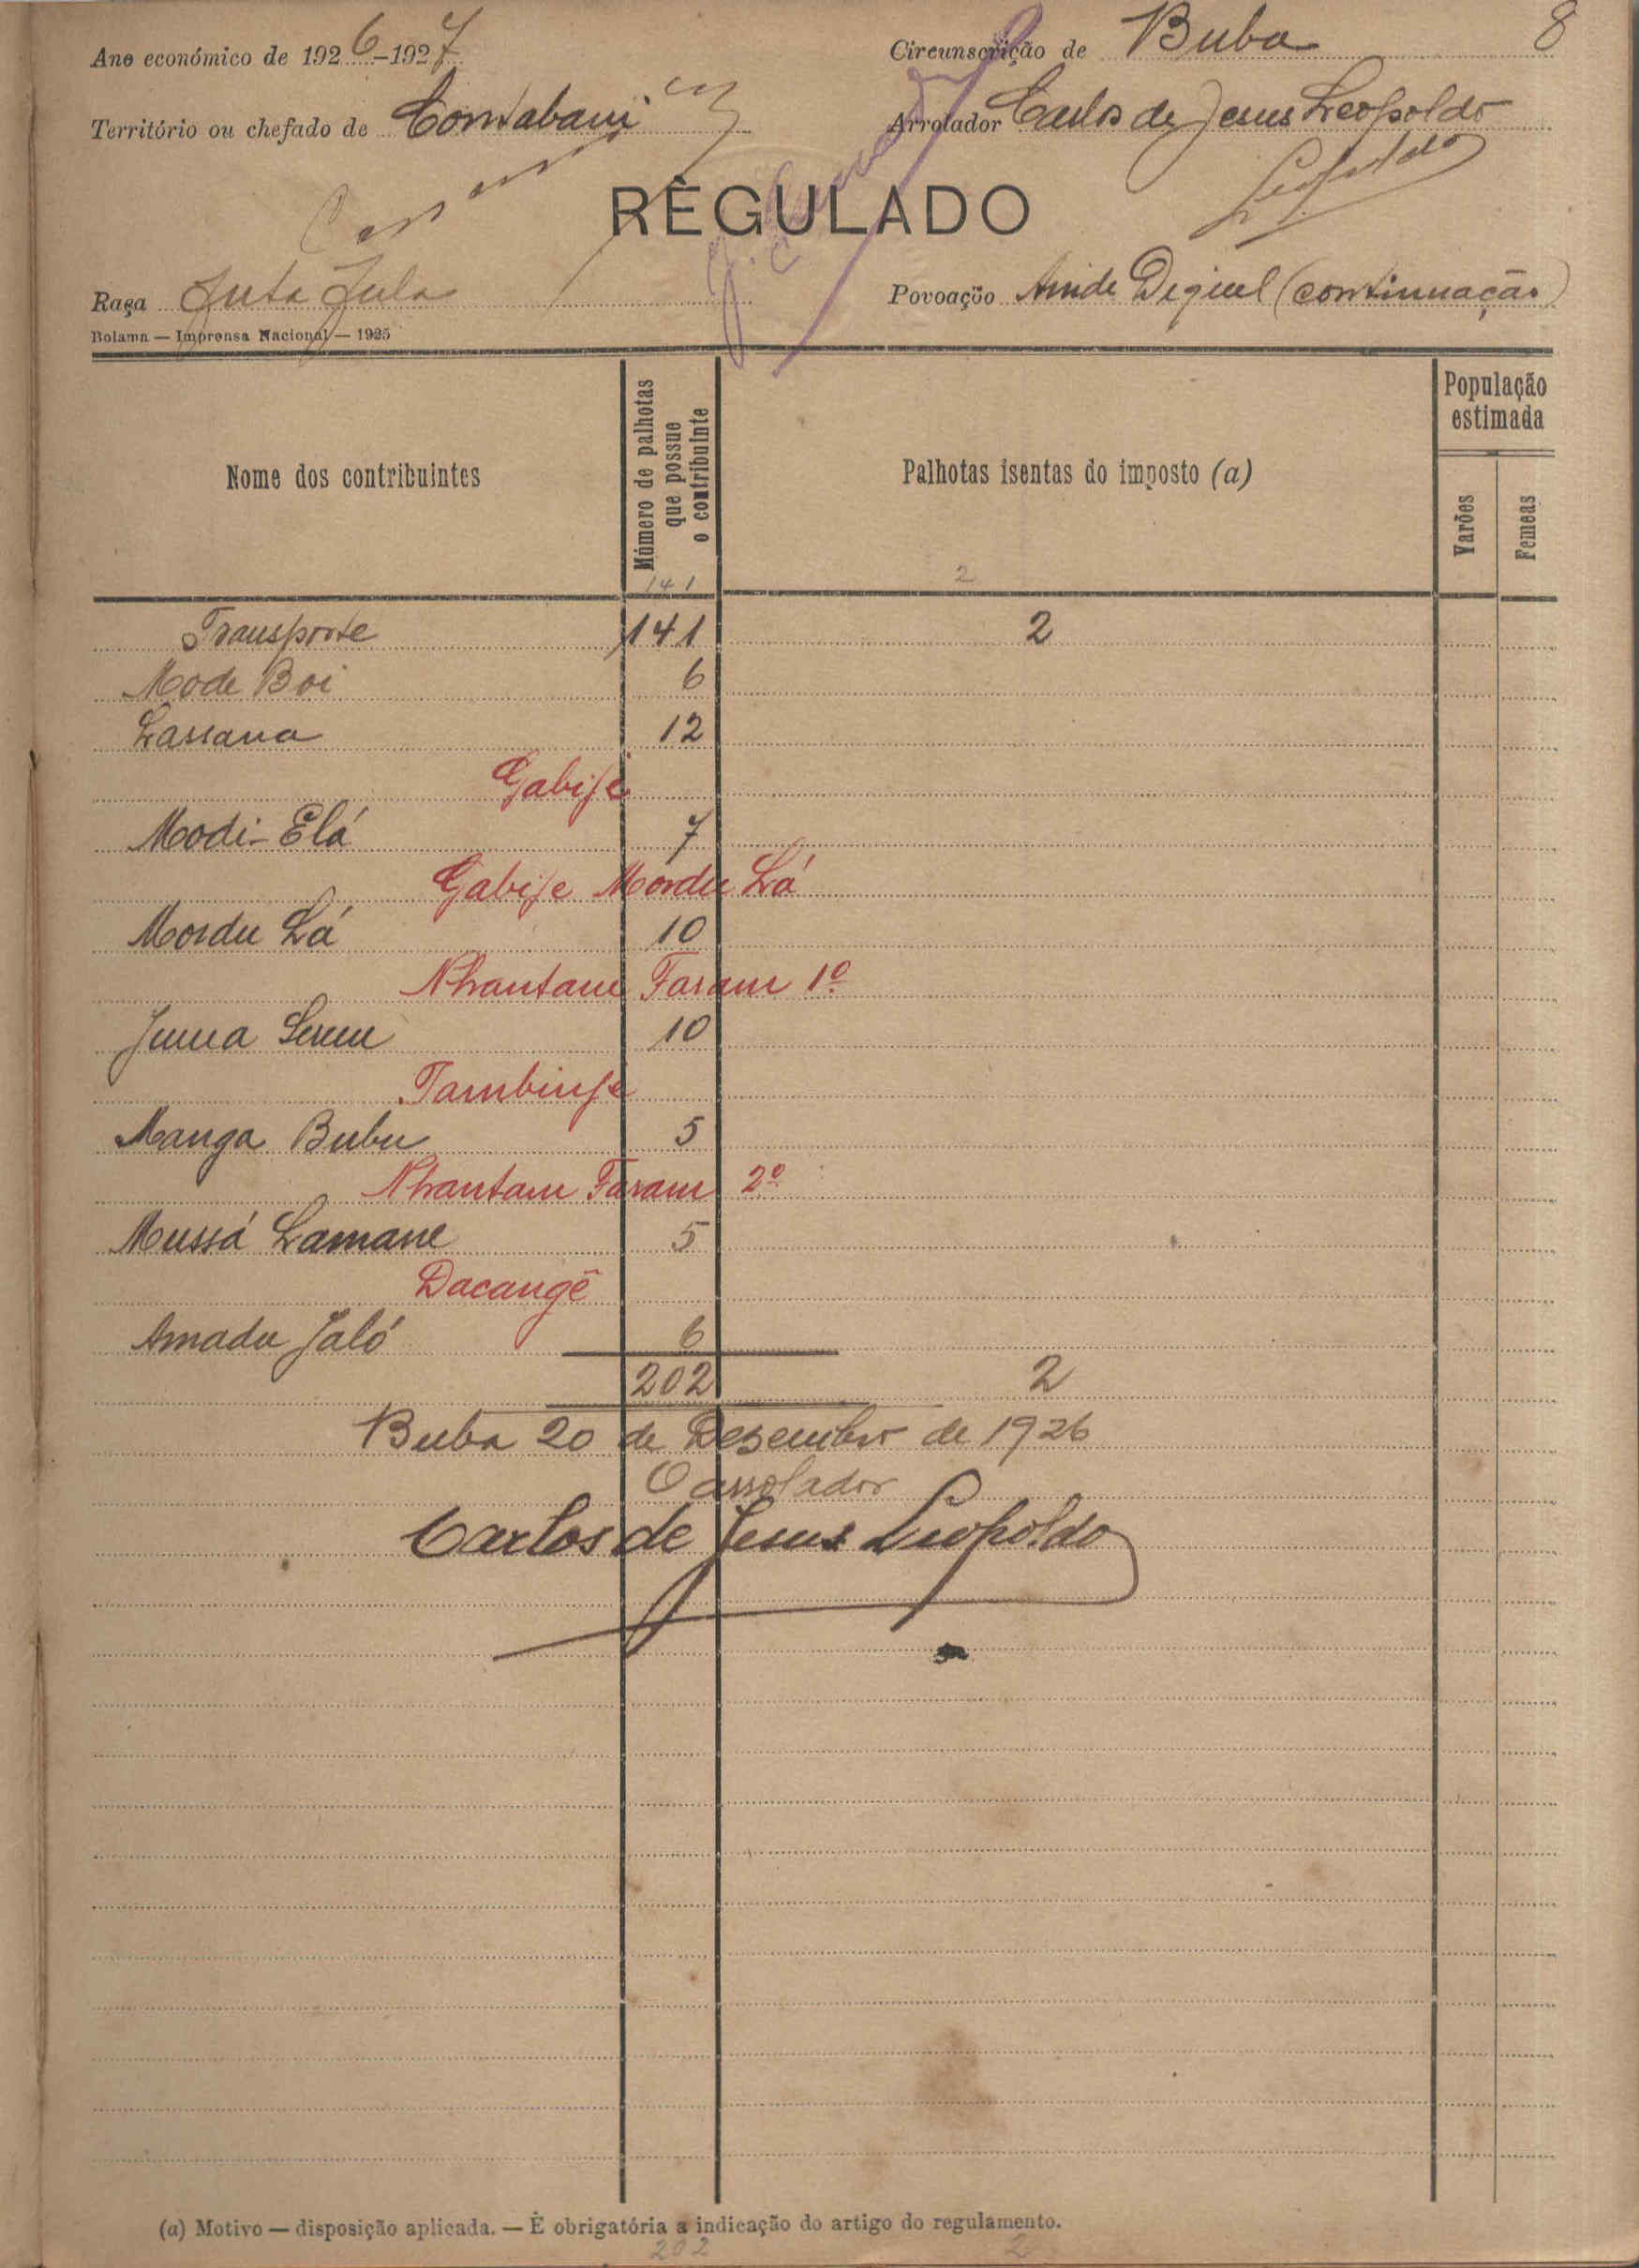 Ano económico de 1926-1927
Circunscrição de Buba 8
Território ou chefado de Contabani
Arrolador Carlos de Jesus Leopoldo
Leopoldo
REGULADO
Raça Futa Fula
Povoação Ainde Diguel (continuação)
Bolama — Imprensa Nacional — 1925
Nome dos contribuintes
Número de palhotas que possue o contribuinte
Palhotas isentas do imposto (a)
População estimada
Varões
Femeas
141 2
Transporte 141 2
Mode Boi 6
Lassana 12
Gabife
Modi-Elá 7
Gabife Mordu Lá
Mordu Lá 10
Nhantane Faram 1º
Juma 10
Tambinfe
Manga Bubu 5
Nhantam Faram 2º
Mussá Lamane 5
Dacangê
Amadu Jaló 6
202 2
Buba 20 de Dezembro de 1926
O arrolador
Carlos de Jesus Leopoldo
(a) Motivo — disposição aplicada. — É obrigatória a indicação do artigo do regulamento.
202 2